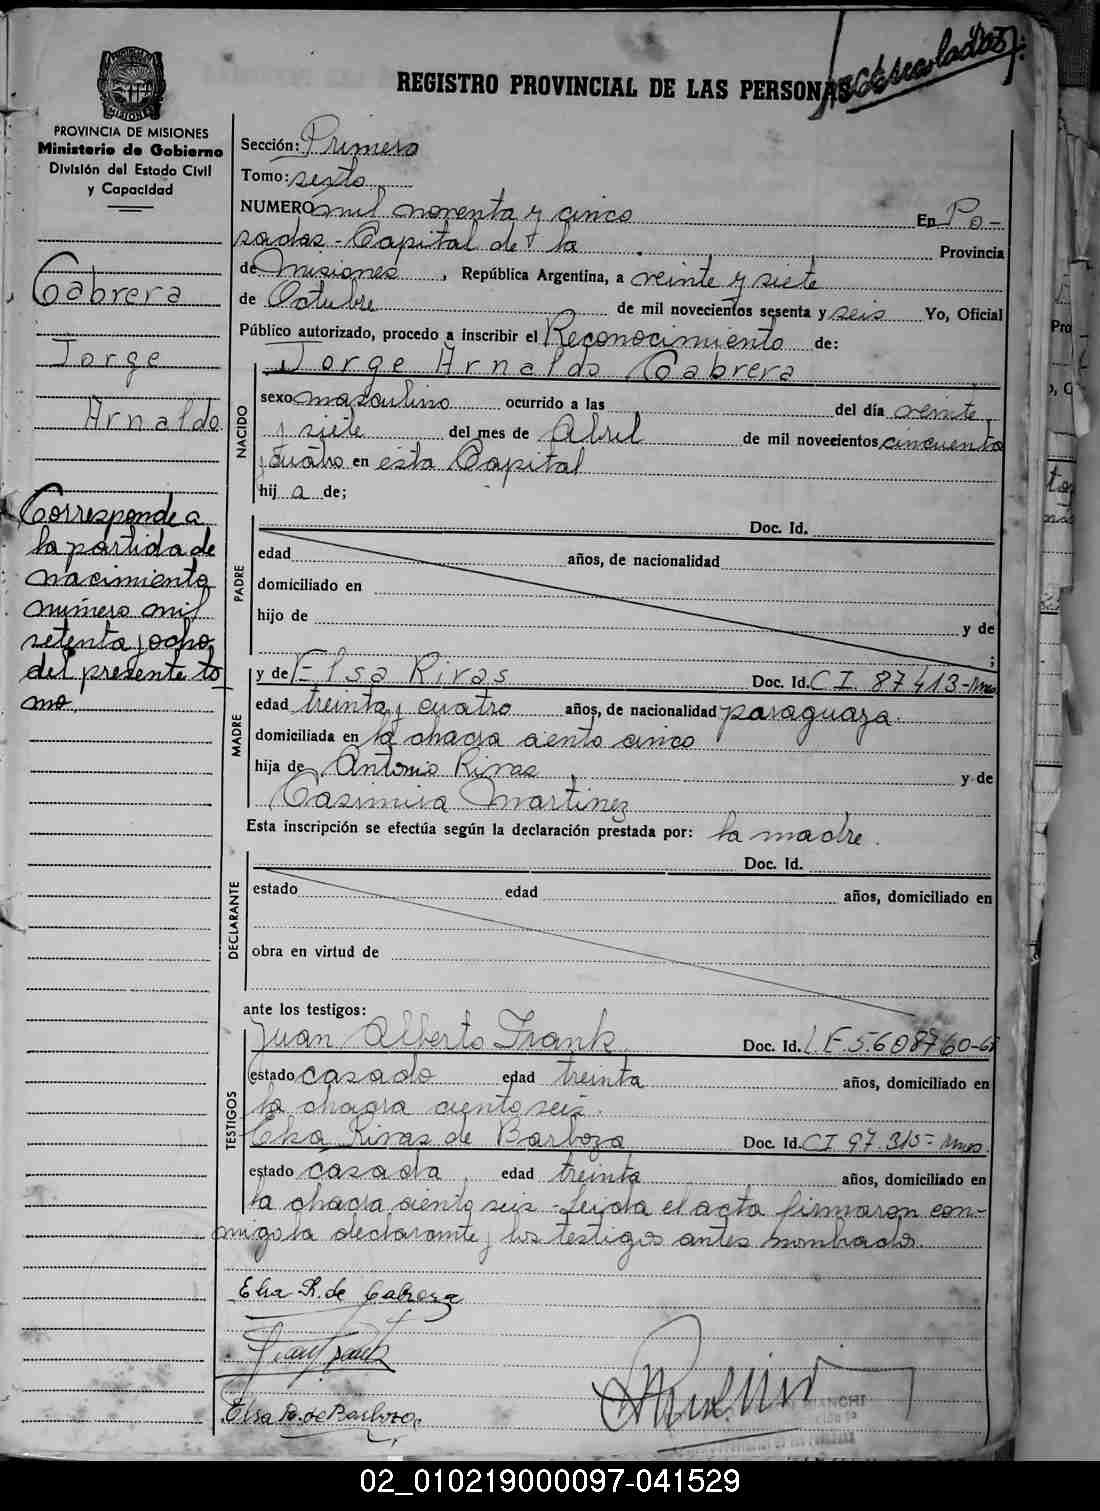 REGISTRO PROVINCIAL DE LAS PERSONAS
PROVINCIA DE MISIONES
Ministerio de Gobierno
División del Estado Civil
y Capacidad
Cabrera
Jorge
Arnaldo
Corresponde a
la partida de
nacimiento
número mil
setenta y ocho
del presente to
mo.
Sección: Primera
Tomo: sexto
NUMERO mil noventa y cinco En Po-
sadas - Capital de la Provincia
de Misiones, República Argentina, a veinte y siete
de Octubre de mil novecientos sesenta y seis Yo, Oficial
Público autorizado, procedo a inscribir el Reconocimiento de:
NACIDO
Jorge Arnaldo Cabrera
sexo masculino ocurrido a las del día veinte
y siete del mes de Abril de mil novecientos cincuenta
y cuatro en esta Capital
hij a de;
PADRE
Doc. Id.
edad años, de nacionalidad
domiciliado en
hijo de y de
;
MADRE
y de Elsa Rivas Doc. Id. C I 87413-Mnes
edad treinta y cuatro años, de nacionalidad paraguaya.
domiciliada en la chacra ciento cinco
hija de Antonio Rivas y de
Casimira Martinez
Esta inscripción se efectúa según la declaración prestada por: la madre.
DECLARANTE
Doc. Id.
estado edad años, domiciliado en
obra en virtud de
ante los testigos:
TESTIGOS
Juan Alberto Frank Doc. Id. L E 5.608760
estado casado edad treinta años, domiciliado en
la chacra ciento seis.
Elsa Rivas de Barboza Doc. Id. C I 97.315-Mnes.
estado casada edad treinta años, domiciliado en
la chacra ciento seis - Leida el acta firmaron con-
migo la declarante y los testigos antes nombrados.
Elsa R. de Cabrera
Elsa R. de Barboza
BIANCHI
02_010219000097-041529